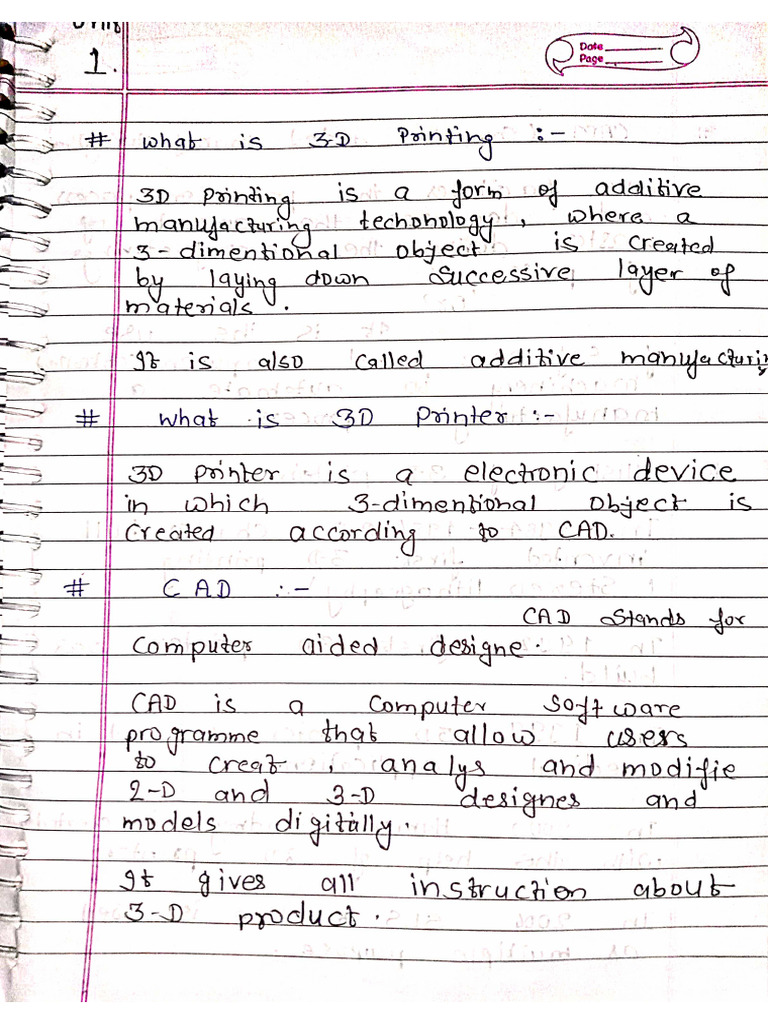 Unit
1.
Date
Page
# What is 3-D Printing :-
3D Printing is a form of additive
manufacturing techonology, where a
3-dimentional object is created
by laying down successive layer of
materials.
It is also called additive manufacturing
# What is 3D Printer :-
3D Printer is a electronic device
in which 3-dimentional object is
created according to CAD.
# CAD :-
CAD stands for
Computer aided designe.
CAD is a computer software
programme that allow users
to creat, analys and modifie
2-D and 3-D designes and
models digitally.
It gives all instruction about
3-D product.